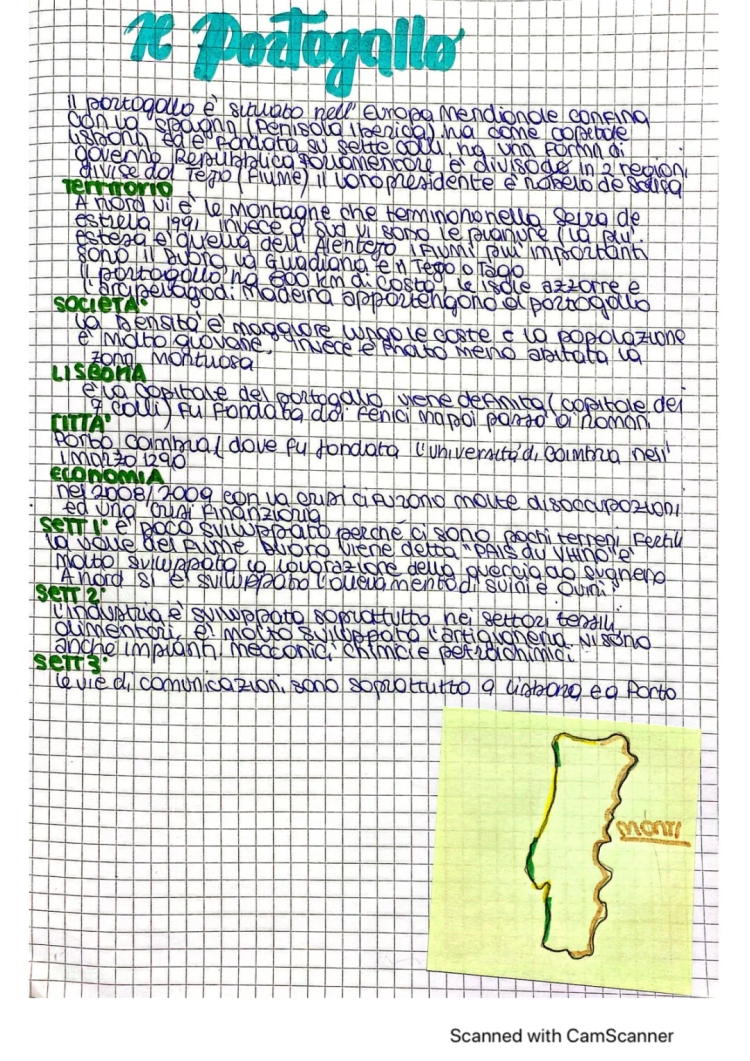 Il Portogallo
Il portogallo è situato nell' Europa Meridionale confina
con la Spagna (Penisola Iberica) ha come capitale
Lisbona ed è fondata su sette colli, ha una forma di
governo Repubblica parlamentare e' divisode in 2 regioni
divise dal Tejo (fiume) il loro presidente è rabelo de Sousa
Territorio
A nord vi e' le montagne che terminano nella Seira de
estrela 1991, invece a sud vi sono le pianure (la piu'
estesa e' quella dell' Alentejo i fiumi piu' importanti
sono il Duoro la Guadiana e n Tejo o Tago
Il portogallo ha 800 km di costa, le isole azzorre e
l'arcipelago di madeira appartengono al portogallo
SOCIETA'
La Densità e' maggiore lungo le coste e la popolazione
e' molto giovane, invece e' molto meno abitata la
zona montuosa
LISBONA
e' la capitale del portogallo viene definita (capitale dei
7 colli) fu fondata dai fenici ma poi passò ai romani
CITTA'
Porto, Coimbra (dove fu fondata l'università di Coimbra nell'
1 marzo 1290
economia
nel 2008/2009 con la crisi ci furono molte disoccupazioni
ed una crisi finanziaria
sett 1° e' poco sviluppato perché ci sono pochi terreni fertili
la valle del fiume Duoro viene detta "PAIS du VHINO" e'
molto sviluppata la lavorazione della quercia da sughero
A nord si e' sviluppato l'allevamento di suini e ovini
sett 2°
L'industria e' sviluppata soprattutto nei settori tessili,
alimentari, e' molto sviluppato l'artigianeria. Vi sono
anche impianti meccanici, chimici e petrolchimici.
sett 3°
Le vie di comunicazioni sono soprattutto a Lisbona e a Porto
monti
Scanned with CamScanner